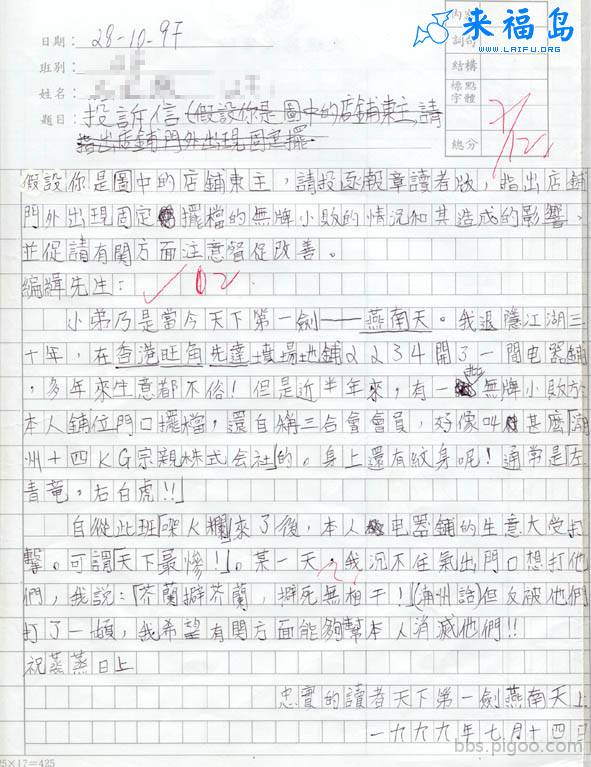 来福岛
WWW.LAIFU.ORG
日期：28-10-97
班別：
姓名：
題目：投訴信(假設你是圖中的店鋪東主,請
指出店鋪門外出現固定擺
內容
詞句
結構
標點
字體
總分
7/12
假設你是圖中的店鋪東主，請投函報章讀者版，指出店鋪
門外出現固定擺檔的無牌小販的情況和其造成的影響，
並促請有関方面注意督促改善。
編緝先生：
小弟乃是當今天下第一劍——燕南天。我退隱江湖三
十年，在香港旺角先達墳場地鋪２２３４開了一間电器鋪
，多年來生意都不俗！但是近半年來，有一些無牌小販於
本人鋪位門口擺檔，還自稱三合會會員，好像叫甚麼「潮
州十四KG宗親株式会社」的。身上還有紋身呢！通常是「左
青竜，右白虎!!」
自從此班「㗎K欄」來了後，本人电器鋪的生意大受打
擊。可謂「天下最慘！」。某一天，我沉不住氣出門口想打他
們，我説：「芥蘭擗芥蘭，擗死無相干！」(潮州話)但反被他們
打了一頓，我希望有関方面能夠幫本人消滅他們!!
祝蒸蒸日上
忠實的讀者天下第一劍燕南天上
一九九九年七月十四日
25×17=425
bbs.pigoo.com